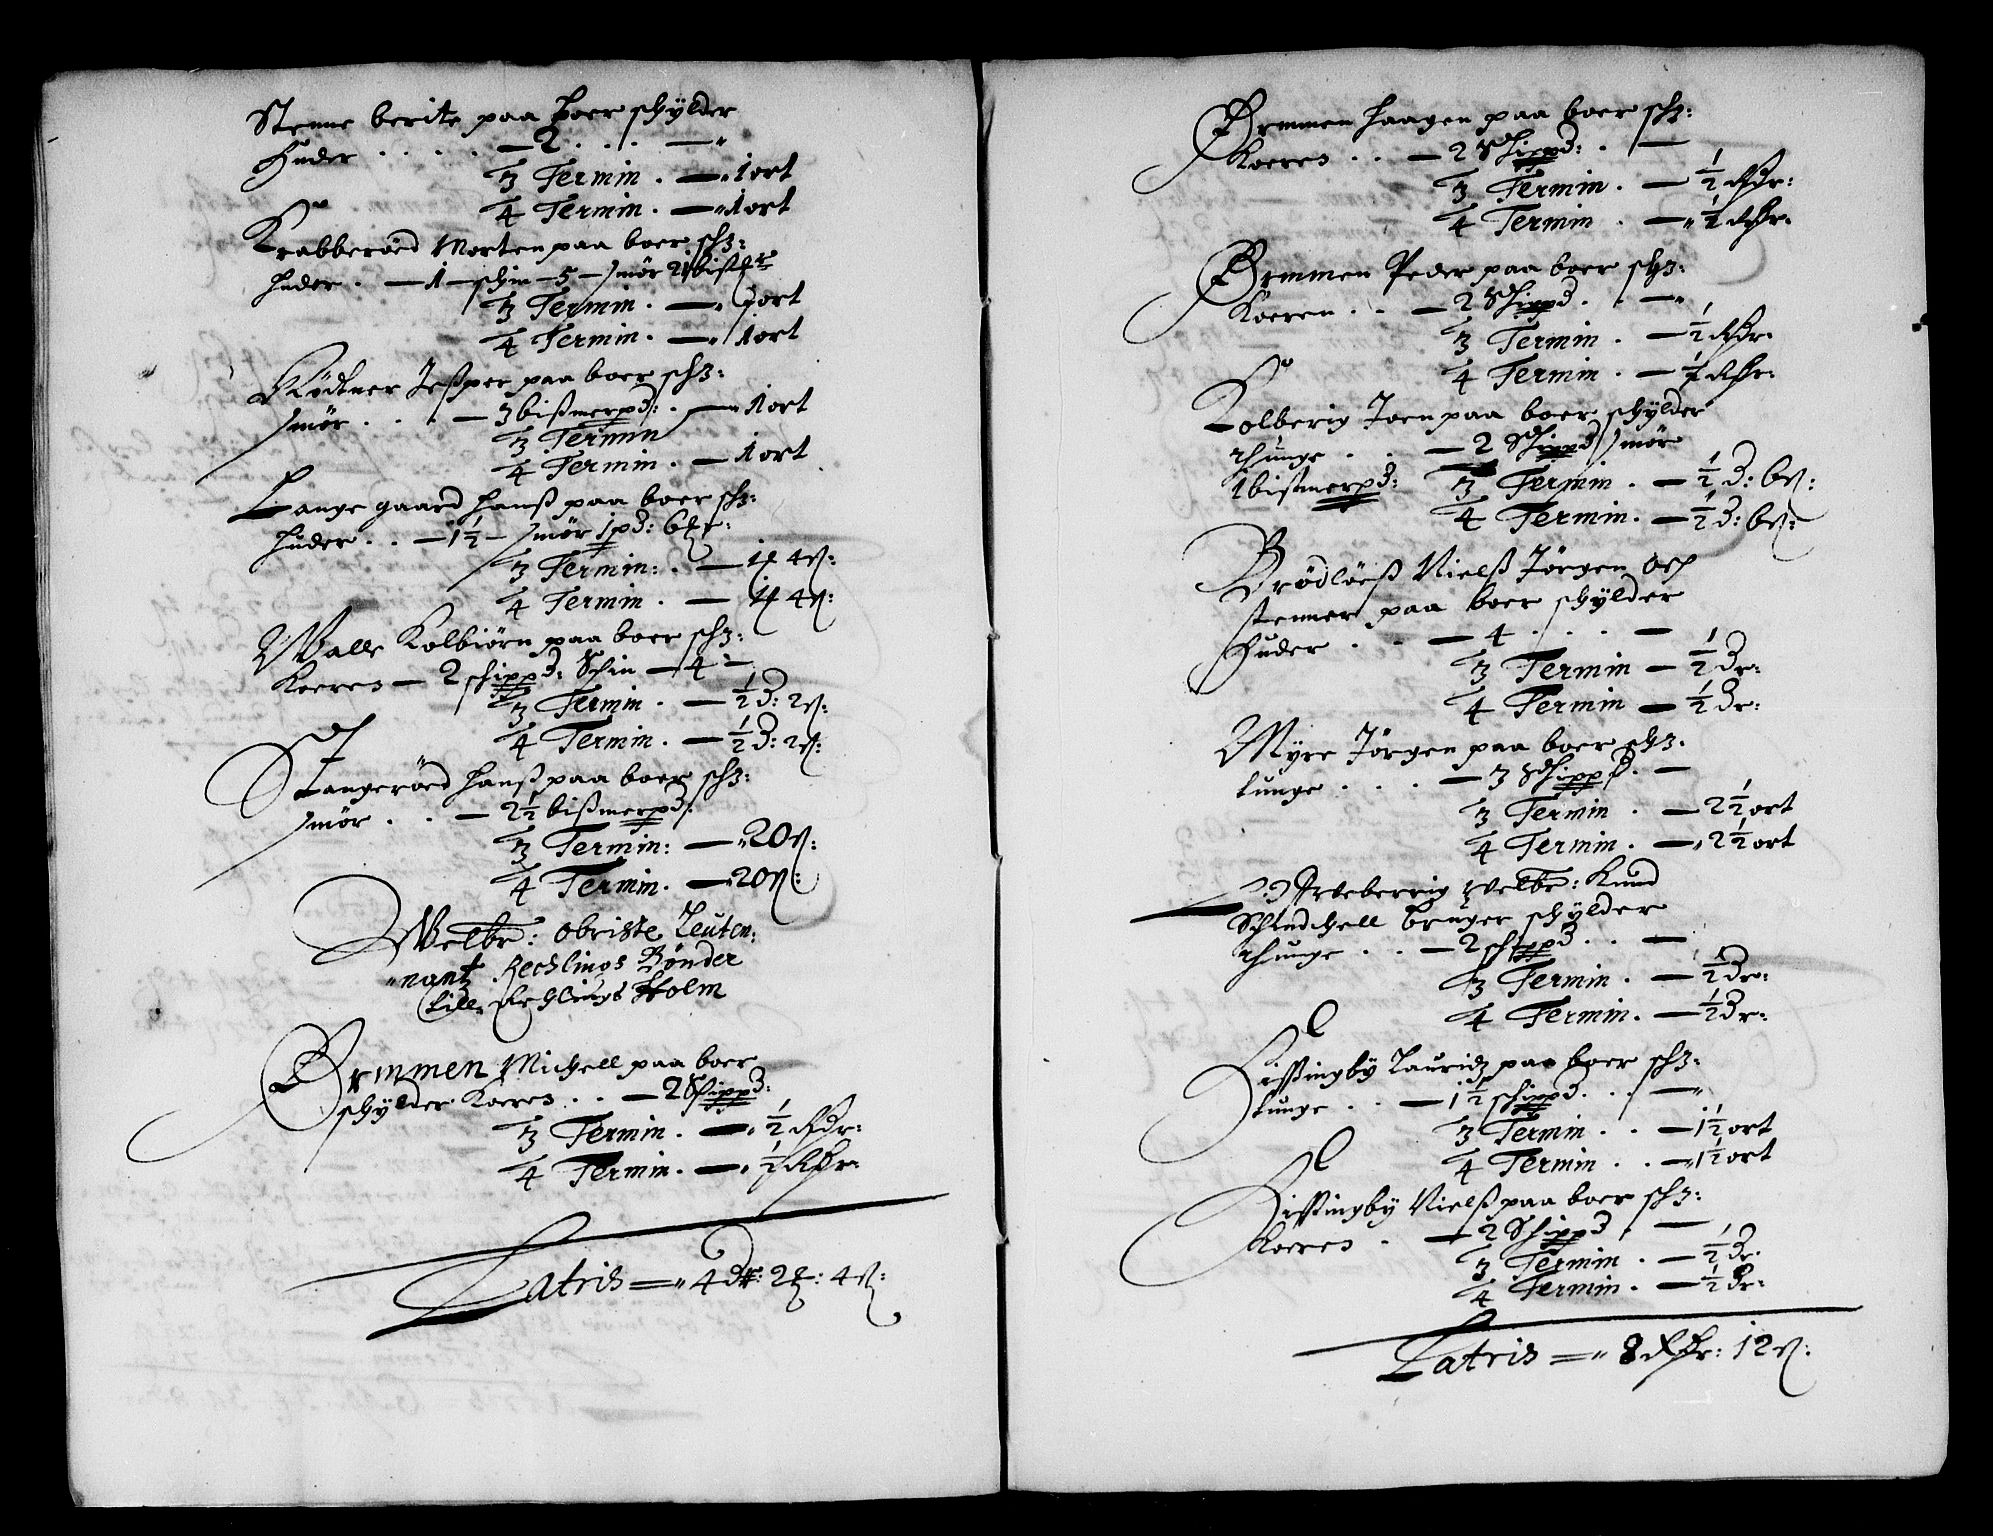 Stenne berite paa boer schÿlder
Huder . . . . . — 2 . . . —„
3 Termin . —„ 1 ort
4 Termin . —„ 1 ort
Krabberöed Morten paa boer schz:
Huder . — 1 — schin — 5 — smör 2 bis℔
3 Termin . —„ 1 ort
4 Termin . —„ 1 ort
Rödtner Jesper paa boer schz:
smör . . . — 3 bißmerpd: . —„ 1 ort
3 Termin
4 Termin . — 1 ort
Lange gaard Hanß paa boer schz:
Huder . . — 1½ — smör 1 pd: 6
3 Termin: . — 1 4 ß:
4 Termin . — 1 4 ß:
Walle Kolbiörn paa boer schz:
Koeren — 2 schippd: Schin — 4 —
3 Termin . — ½ d: 2 ß:
4 Termin . — ½ d: 2 ß:
Stangeröed Hanß paa boer schz:
smör . . — 2½ bißmerpd:
3 Termin: — „ 20 ß:
4 Termin . — „ 20 ß:
Welbr: Obriste Leuten:
„nant Rechlings Bönder
till Rechlings Holm
Ormmen Michell paa boer
schÿlder Koeren . . — 2 Schippd:
3 Termin . —„ ½ Rdr:
4 Termin . —„ ½ Rdr:
Latris =„ 4 dr: 2 : 4 ß:
Ormmen Haagen paa boer schz:
Koeren . . — 2 Schippd: . —
3 Termin . — ½ Rdr:
4 Termin . —„ ½ Rdr:
Ormmen Peder paa boer schz:
Koeren . . — 2 Schippd . . —„
3 Termin . — ½ Rdr:
4 Termin . — ½ Rdr:
Kolberig Joen paa boer schÿlder
thunge . . — 2 Schippd smör
1 bißmerpd: 3 Termin . — ½ d: 6 ß:
4 Termin . — ½ d: 6 ß:
Brödlöeß Nielß Jörgen Och
stenner paa boer schÿlder
Huder . . . — 4 . . . —
3 Termin — ½ dr:
4 Termin — ½ dr:
Myre Jörgen paa boer schz:
tunge . . . — 3 Schippd . —
3 Termin . — 2½ ort
4 Termin . —„ 2½ ort
Arveberrig welbr: Knud
Schinchell bruger schÿlder
thunge . . — 2 schippd . . —
3 Termin . — ½ dr:
4 Termin . — ½ dr:
Kissingby Lauridz paa boer schz:
tunge . . — 1½ schippd . . . —„
3 Termin . . — 1½ ort
4 Termin . . —„ 1½ ort
Kissingbÿ Nielß paa boer schz:
Koeren . — 2 Schippd . —
3 Termin . — ½ dr
4 Termin . — ½ dr:
Latris =„ 8 Rdr: 12 ß: